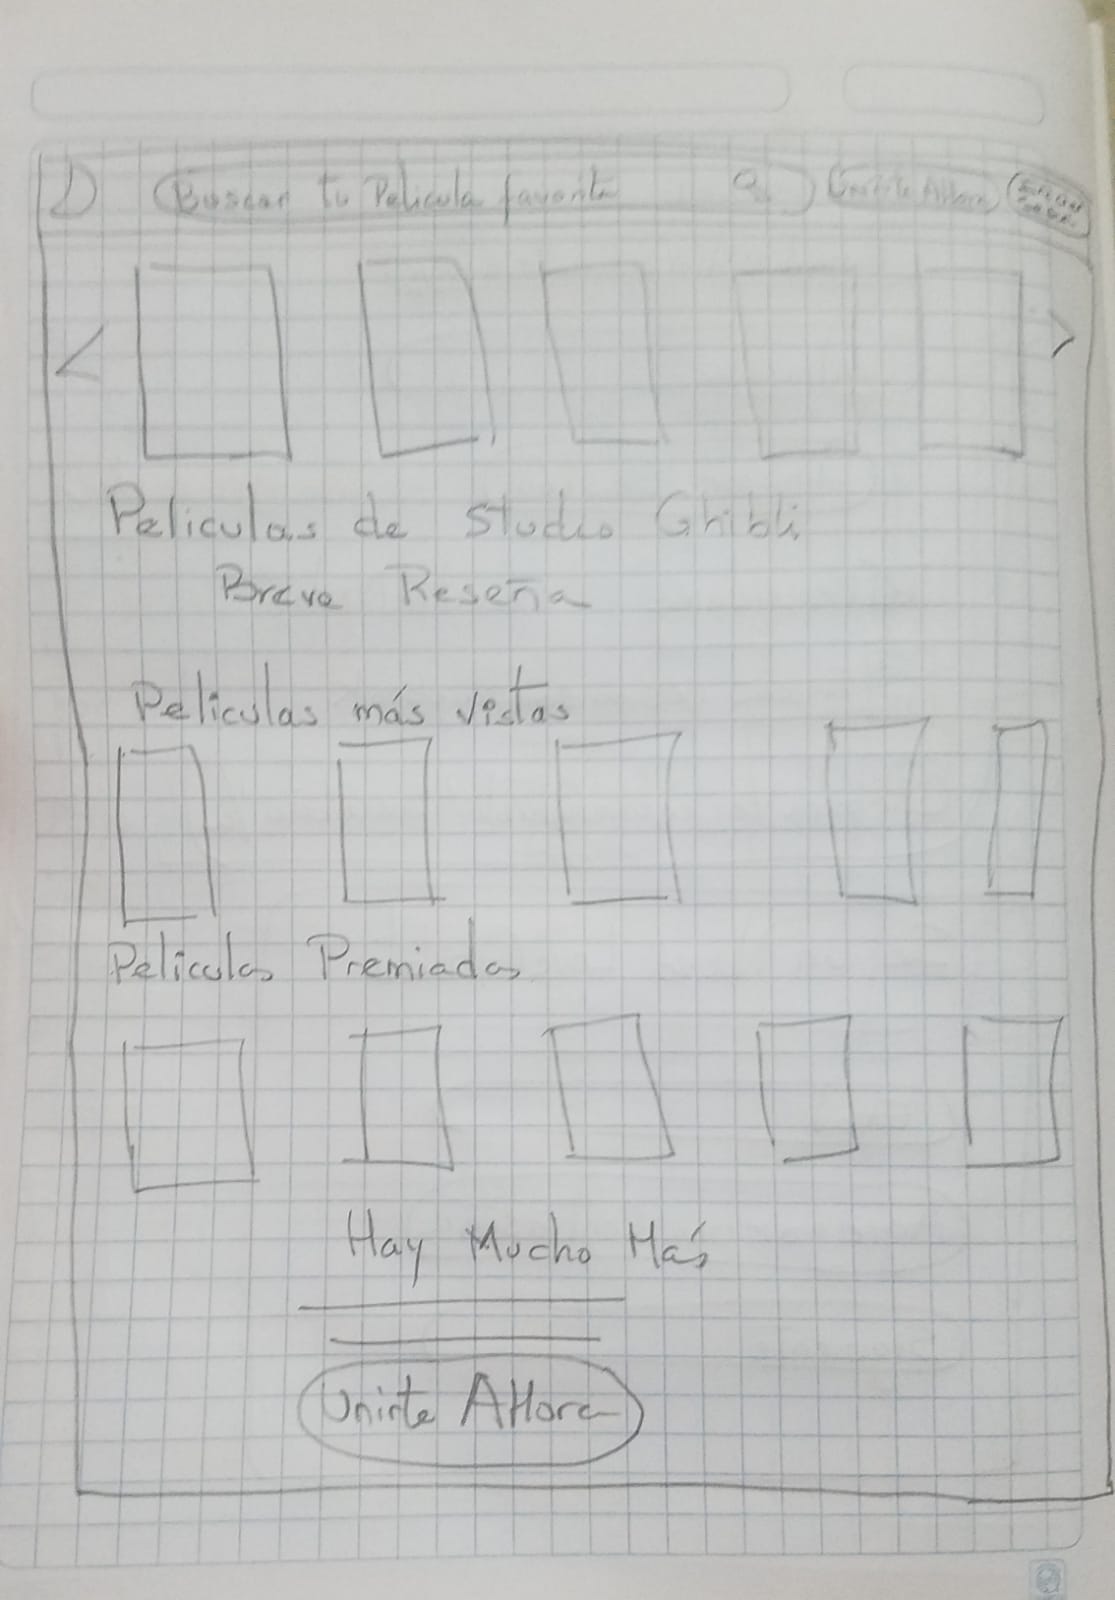 D Buscar tu Pelicula favorita
Peliculas de Studio Ghibli
Breve Reseña
Peliculas más vistas
Peliculas Premiadas
Hay Mucho Más
Unirte AHora